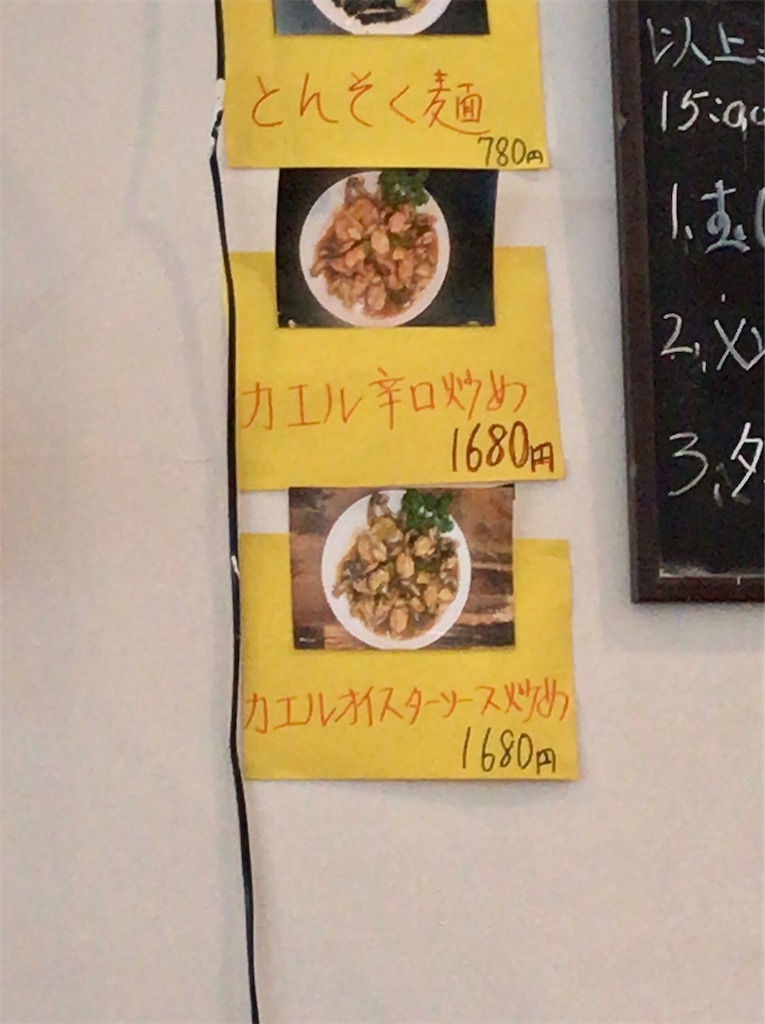 とんそく麺
780円
カエル辛口炒め
1680円
カエルオイスターソース炒め
1680円
以上
1.
2.
3.